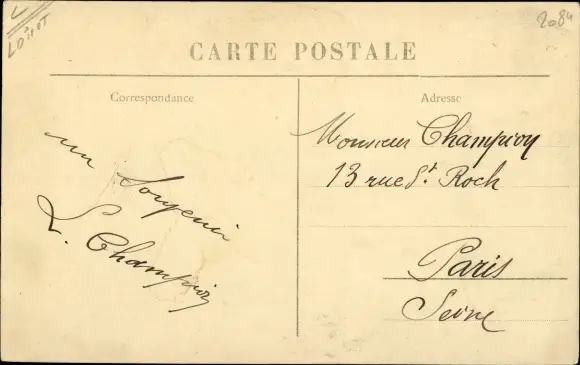 L
LOIRET
2084
CARTE POSTALE
Correspondance
Adresse
un Souvenir
L. Champion
Monsieur Champion
13 rue St. Roch
Paris
Seine